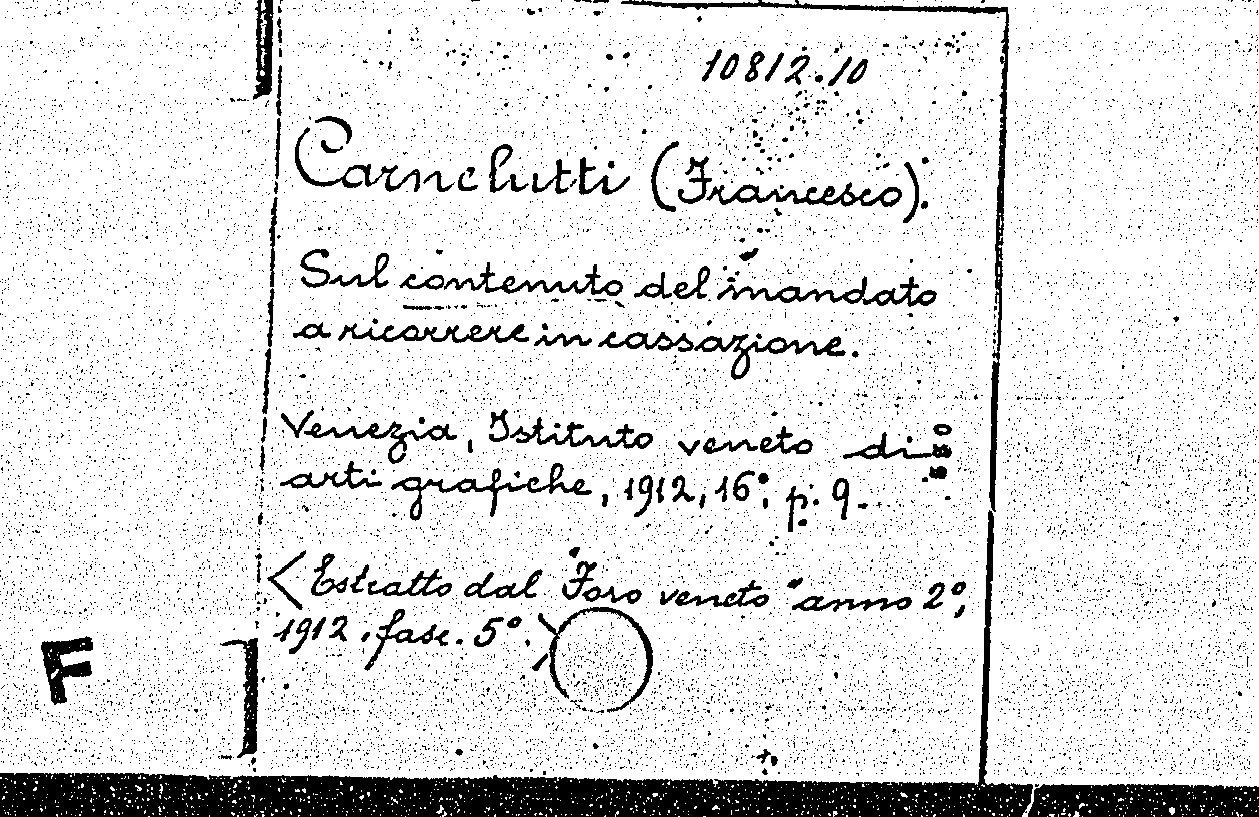 10812.10
Carnelutti (Francesco).
Sul contenuto del mandato
a ricorrere in cassazione.
Venezia, Istituto veneto di
arti grafiche, 1912, 16°, p. 9.
<Estratto dal "Foro veneto" anno 2°,
1912. fasc. 5°.>
F